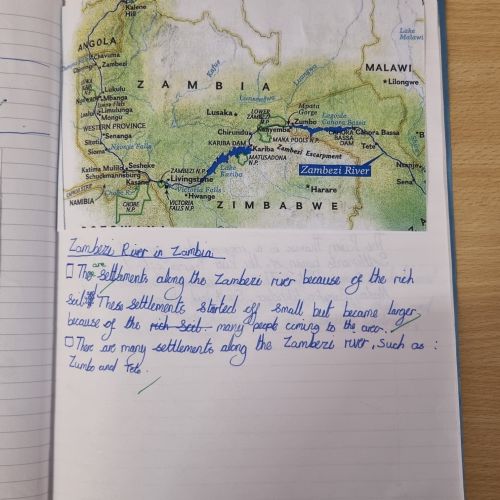 Kalene
Hill
ANGOLA
Chavuma
Zambezi
Lake
Malawi
MALAWI
Lilongwe
Z A M B I A
Kafue
Lukulu
Limulunga
Mongu
WESTERN PROVINCE
Senanga
Sitoti
Sioma
Ngonye Falls
Lusaka
LOWER
ZAMBEZI
N.P.
Kanyemba
Mpata
Gorge
Zumbo
Lake
Cahora Bassa
CAHORA
BASSA
DAM
Cahora Bassa
Tete
Chirundu
MANA POOLS N.P.
KARIBA DAM
Kariba
Zambezi Escarpment
MATUSADONA
N.P.
Lake
Kariba
Zambezi River
Katima Mulilo
Sesheke
Schuckmannsburg
Kasane
ZAMBEZI N.P.
Livingstone
Victoria Falls
Hwange
VICTORIA
FALLS N.P.
CHOBE
N.P.
NAMIBIA
Harare
Z I M B A B W E
Sena
Zambezi River in Zambia
There are settlements along the Zambezi river because of the rich
soil. These settlements started off small but became larger
because of the rich soil. many people coming to the area.
There are many settlements along the Zambezi river, such as :
Zumbo and Tete.